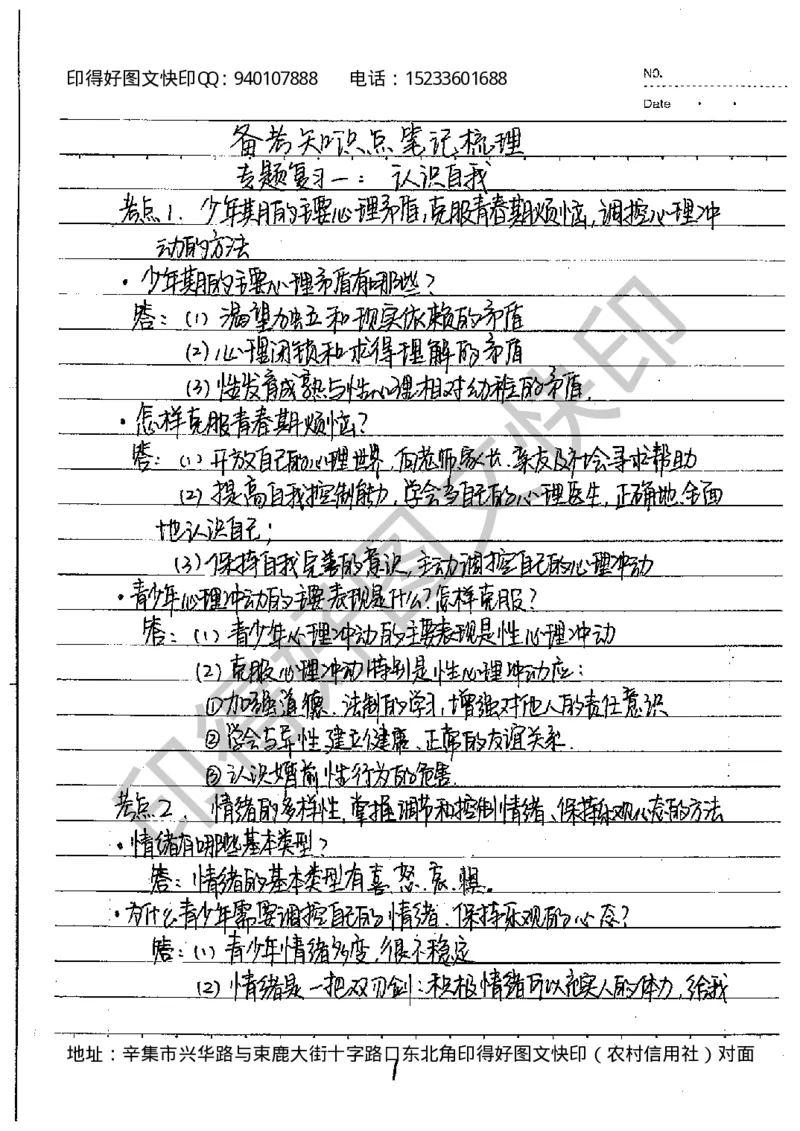 印得好图文快印QQ：940107888 电话：15233601688
No.
Date
备考知识点笔记梳理
专题复习一：认识自我
考点1.少年期的主要心理矛盾,克服青春期烦恼,调控心理冲
动的方法
·少年期的主要心理矛盾有哪些?
答：(1)渴望独立和现实依赖的矛盾
(2)心理闭锁和求得理解的矛盾
(3)性发育成熟与性心理相对幼稚的矛盾.
·怎样克服青春期烦恼?
答：(1)开放自己的心理世界,向老师、家长、亲友及社会寻求帮助
(2)提高自我控制能力,学会当自己的心理医生,正确地、全面
地认识自己;
(3)保持自我完善的意识,主动调控自己的心理冲动
·青少年心理冲动的主要表现是什么?怎样克服?
答：(1)青少年心理冲动的主要表现是性心理冲动
(2)克服心理冲动特别是性心理冲动应：
①加强道德、法制的学习,增强对他人的责任意识
②学会与异性建立健康、正常的友谊关系.
③认识婚前性行为的危害.
考点2.情绪的多样性,掌握调节和控制情绪、保持乐观心态的方法
·情绪有哪些基本类型?
答：情绪的基本类型有喜、怒、哀、惧。
·为什么青少年需要调控自己的情绪、保持乐观的心态?
答：(1)青少年情绪多变,很不稳定
(2)情绪是一把双刃剑：积极情绪可以充实人的体力,给我
地址：辛集市兴华路与束鹿大街十字路口东北角印得好图文快印（农村信用社）对面
1
印得好图文快印